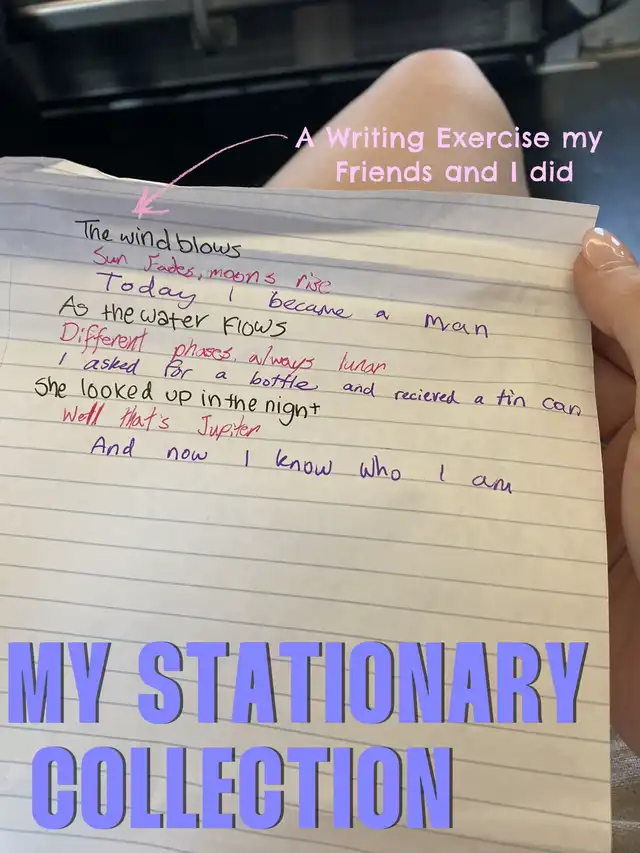 A Writing Exercise my
Friends and I did
The wind blows
Sun Fades, moons rise
Today I became a man
As the water Flows
Different phases, always lunar
I asked for a bottle and recieved a tin can
She looked up in the night
Well that's Jupiter
And now I know who I am
MY STATIONARY
COLLECTION